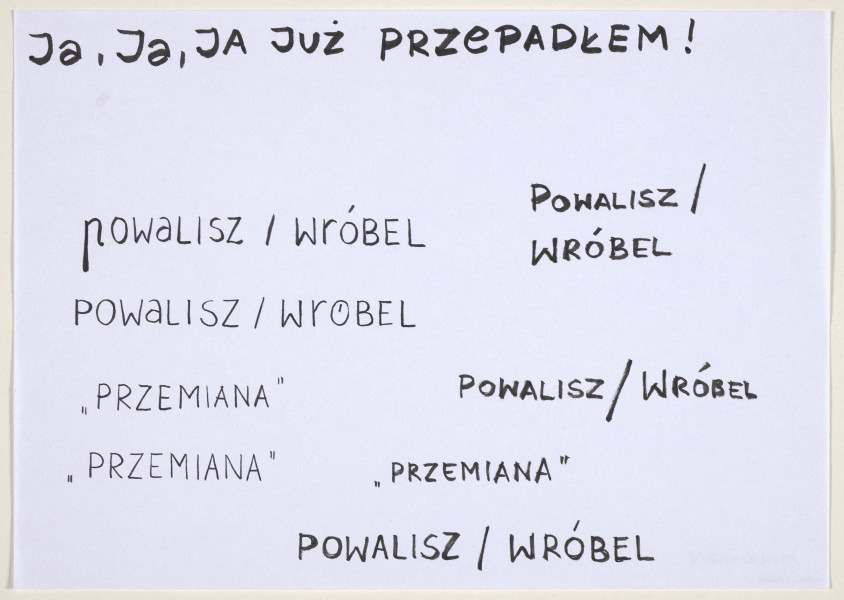 Ja, Ja, JA JUŻ PRZePADŁEM!
POWALISZ /
WRÓBEL
pOWaLISZ / WrÓBEL
POWaLISZ / WrÓBEL
„PRZEMIANA"
POWALISZ / WRÓBEL
„PRZEMIANA"
„PRZEMIANA"
POWALISZ / WRÓBEL